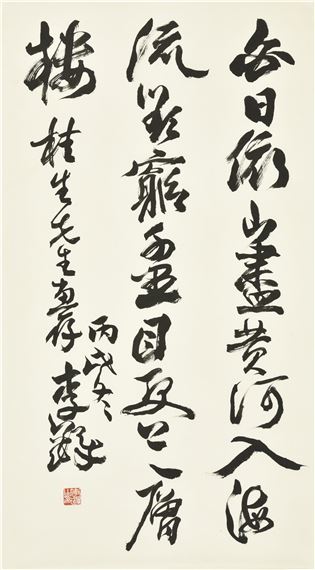 白日依山盡黄河入海
流欲窮千里目更上一層
樓 桂生先生惠存
丙戌冬 李鐸